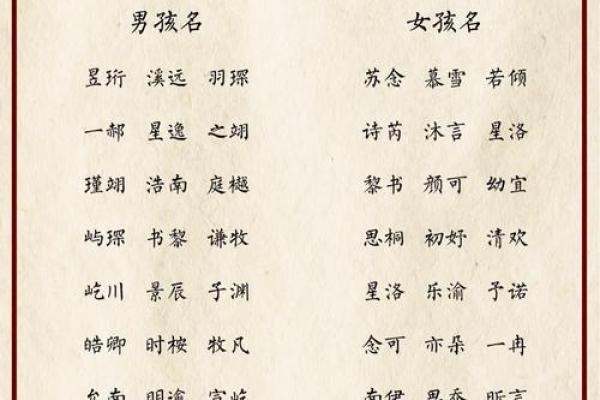 男孩名 女孩名
昱珩 溪远 羽琛 苏念 慕雪 若倾
一郝 星逸 之翊 诗芮 沐言 星洛
瑾翊 浩南 庭樾 黎书 颜可 幼宜
屿琛 书黎 谦牧 思桐 初妤 清欢
屹川 景辰 子渊 星洛 乐渝 予诺
皓卿 时桉 牧凡 念可 亦朵 一冉